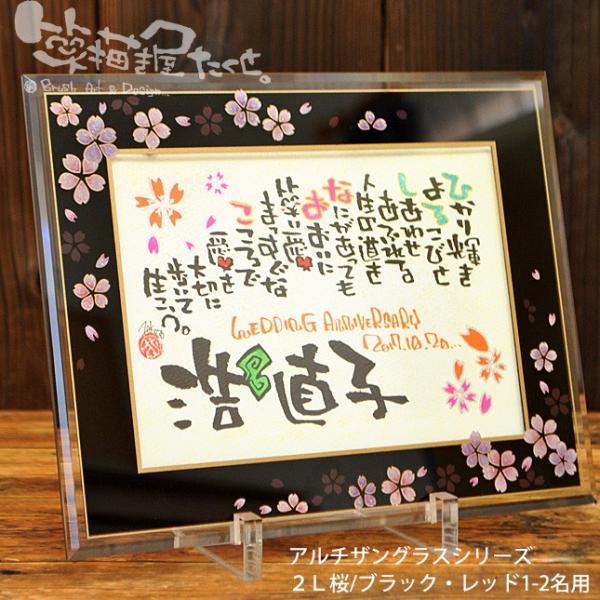 Brush Art & Design...
ひかり輝き
よろこびと
しあわせ
あふれて。
人生の道を
なにがあっても
おおいに
笑い愛
まっすぐな
こころで
愛を
大切に
歩いて
生こう。
WEDDING ANNIVERSARY
2017.10.20...
浩 直子
アルチザングラスシリーズ
2L桜/ブラック・レッド1-2名用